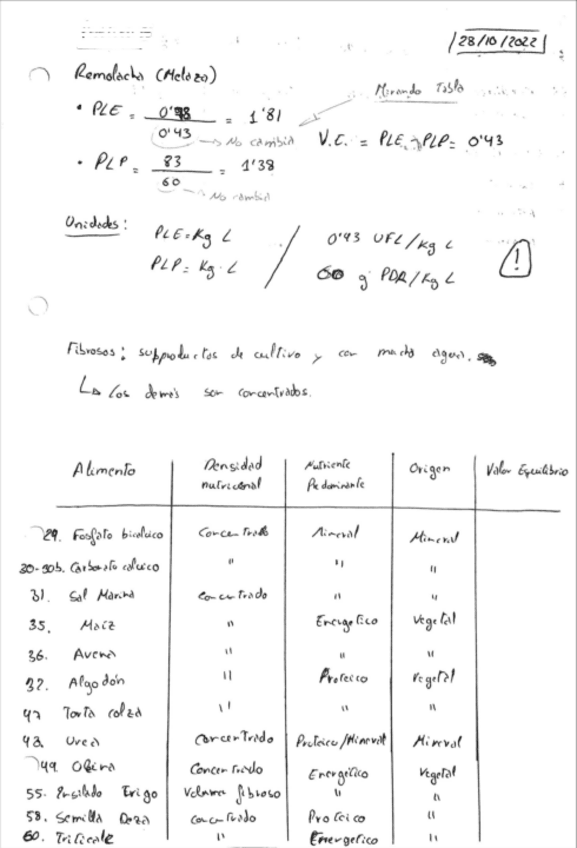 28/10/2022
Remolacha (Melaza)
Mirando Tabla
• PLE = 0'78 / 0'43 = 1'81
No cambia
V.E. = PLE - PLP = 0'43
• PLP = 83 / 60 = 1'38
No cambia
Unidades:
PLE = Kg L / 0'43 UFL/Kg L
PLP = Kg L / 60 g PDR/Kg L
!
Fibrosos: supproductos de cultivo y con mucha agua.
↳ Los demás son concentrados.
Alimento | Densidad nutricional | Nutriente Predominante | Origen | Valor Equilibrio
29. Fosfato bicalcico | Concentrado | Mineral | Mineral
30-30b. Carbonato calcico | " | " | "
31. Sal Marina | Concentrado | " | "
35. Maíz | " | Energetico | Vegetal
36. Avena | " | " | "
37. Algodón | " | Proteico | Vegetal
42 Torta colza | " | " | "
43. Urea | Concentrado | Proteico/Mineral | Mineral
49. | Concentrado | Energético | Vegetal
55. Ensilado Trigo | Volumen fibroso | " | "
58. Semilla | Concentrado | Proteico | "
60. Triticale | " | Energetico | "